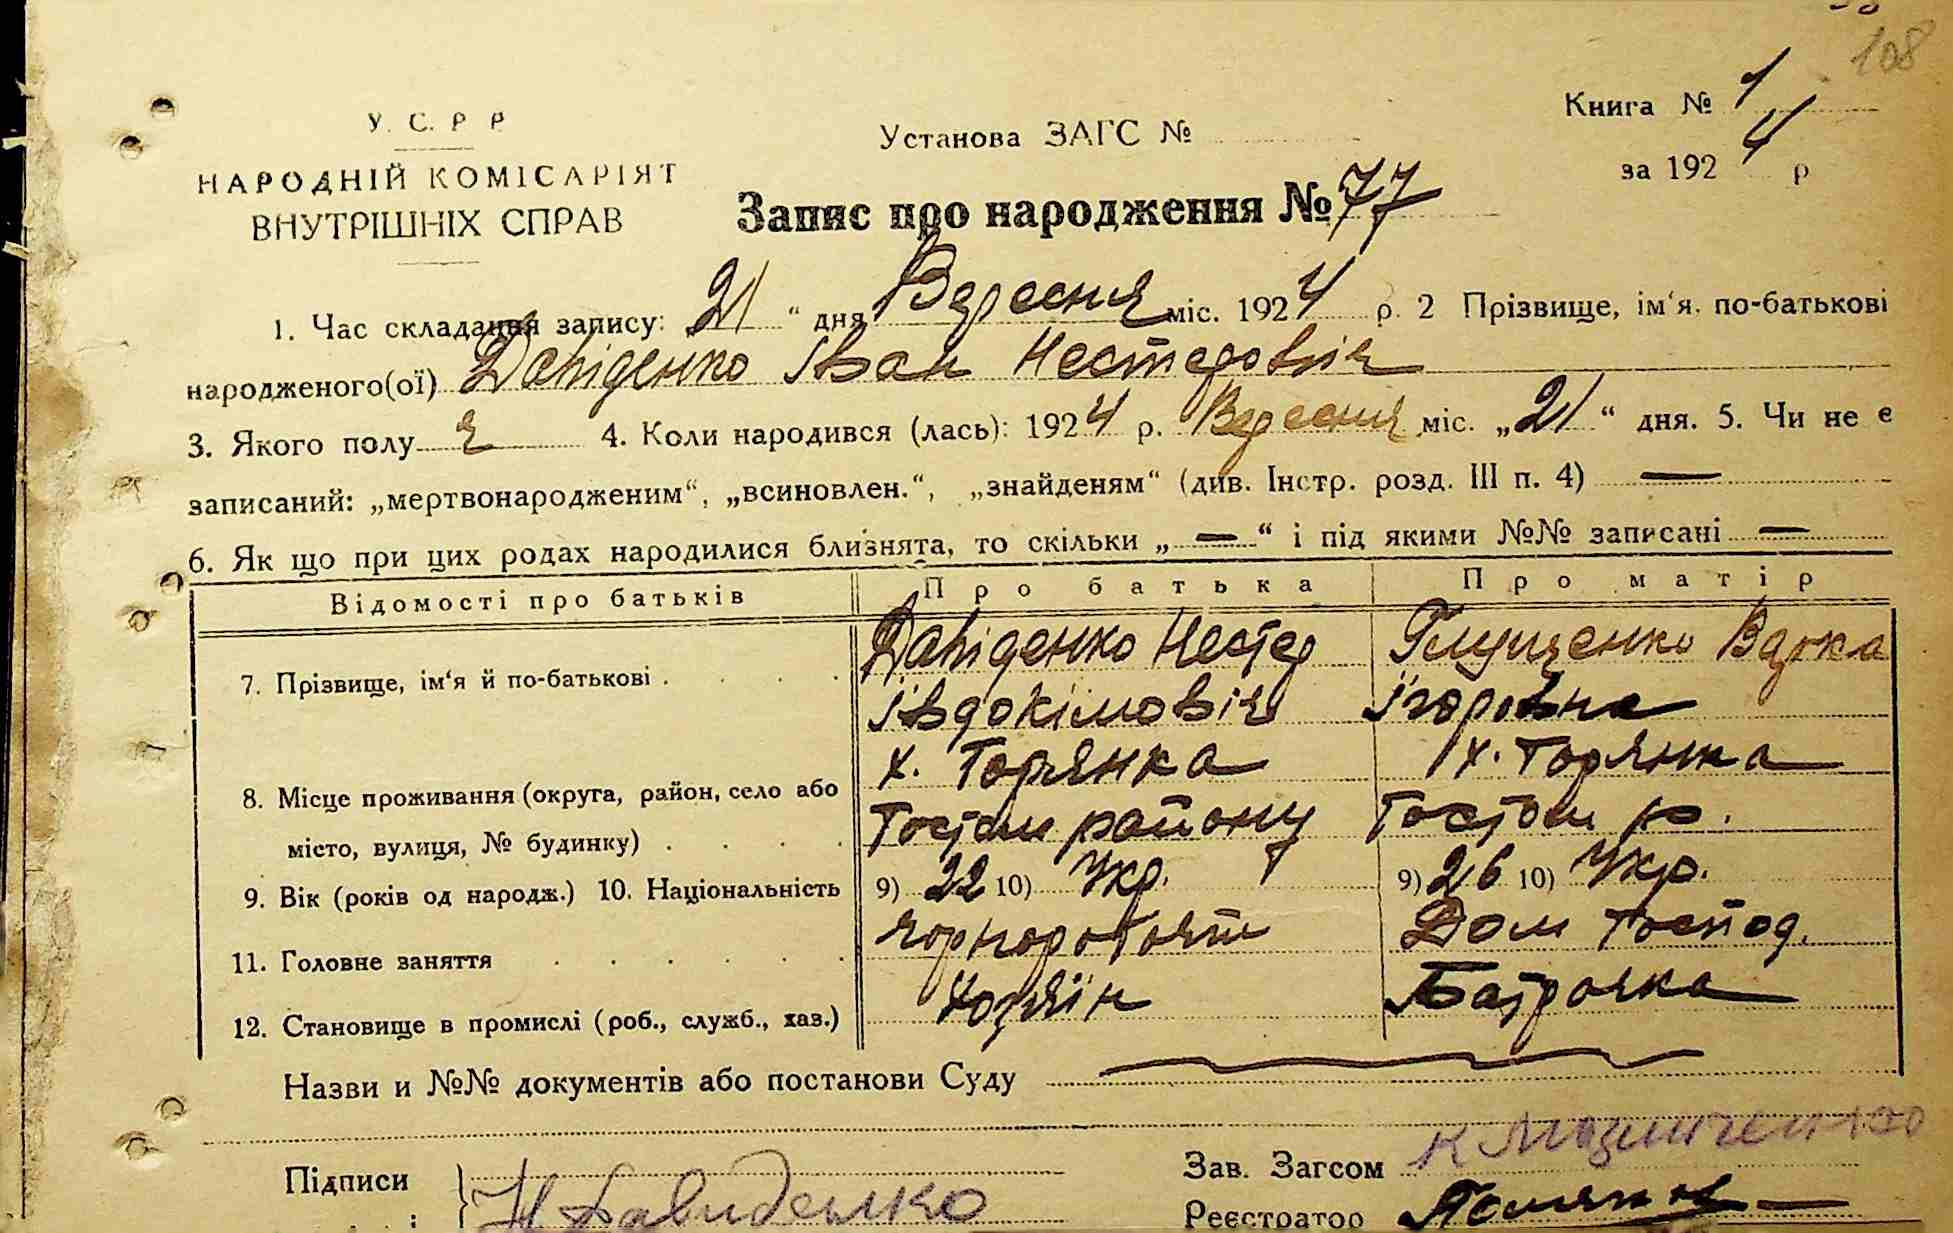 108
У. С. Р Р
НАРОДНІЙ КОМІСАРІЯТ
ВНУТРІШНІХ СПРАВ
Установа ЗАГС №
Книга № 1
за 1924 р
Запис про народження № 77
1. Час складання запису: „21“ дня Вересня міс. 1924 р. 2 Прізвище, ім'я, по-батькові
народженого(ої) Давіденко Іван Нестеровіч
3. Якого полу ч 4. Коли народився (лась): 1924 р. Вересня міс. „21“ дня. 5. Чи не є
записаний: „мертвонародженим“, „всиновлен.“, „знайденям“ (див. Інстр. розд. III п. 4) —
6. Як що при цих родах народилися близнята, то скільки „—“ і під якими №№ записані —
Відомості про батьків Про батька Про матір
7. Прізвище, ім'я й по-батькові . . . . Давіденко Нестер Глущенко Вдока
Івдокімовіч Ігоровна
8. Місце проживання (округа, район, село або х. Горянка х. Горянка
місто, вулиця, № будинку) . . . . району
9. Вік (років од народж.) 10. Національність 9) 22 10) Укр. 9) 26 10) Укр.
11. Головне заняття . . . . . . Дом Господ.
12. Становище в промислі (роб., служб., хаз.) Хозяїн Батрачка
Назви и №№ документів або постанови Суду
Підписи Н Давиденко
Зав. Загсом
Реєстратор